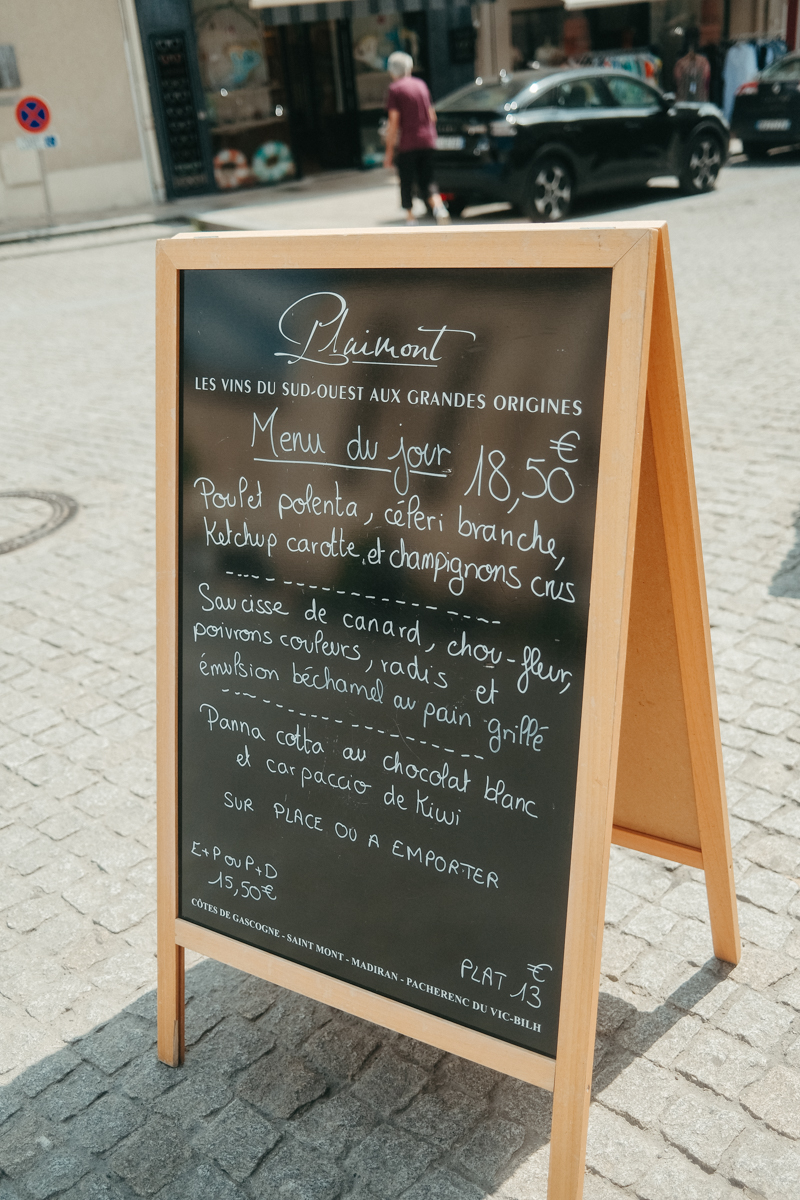 Plaimont
LES VINS DU SUD-OUEST AUX GRANDES ORIGINES
Menu du jour 18,50€
Poulet polenta, céleri branche,
Ketchup carotte, et champignons crus
Saucisse de canard, chou-fleur,
poivrons couleurs, radis et
émulsion béchamel au pain grillé
Panna cotta au chocolat blanc
et carpaccio de Kiwi
SUR PLACE OU A EMPORTER
E+P ou P+D
15,50€
PLAT 13€
CÔTES DE GASCOGNE - SAINT MONT - MADIRAN - PACHERENC DU VIC-BILH